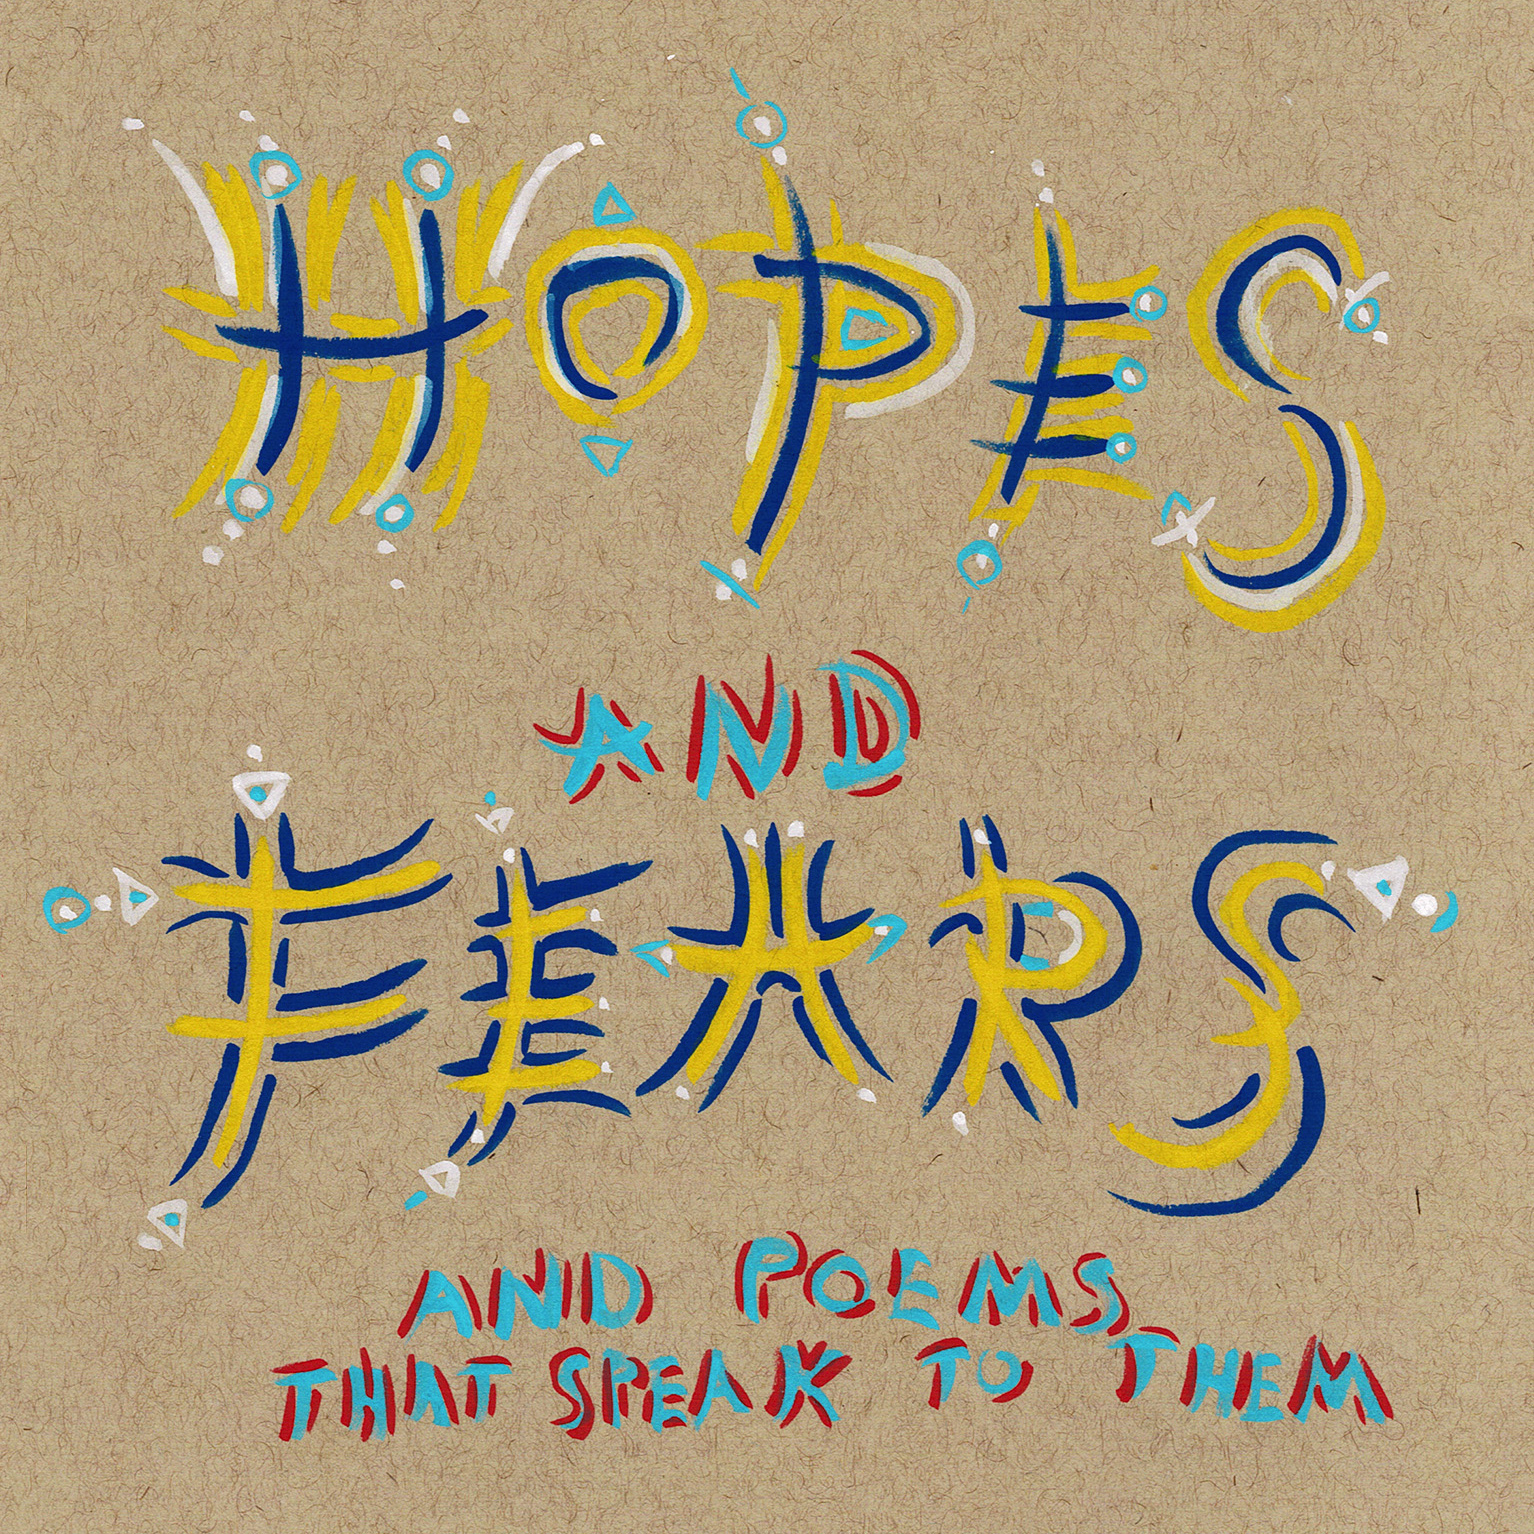 HOPES
AND
FEARS
AND POEMS
THAT SPEAK TO THEM